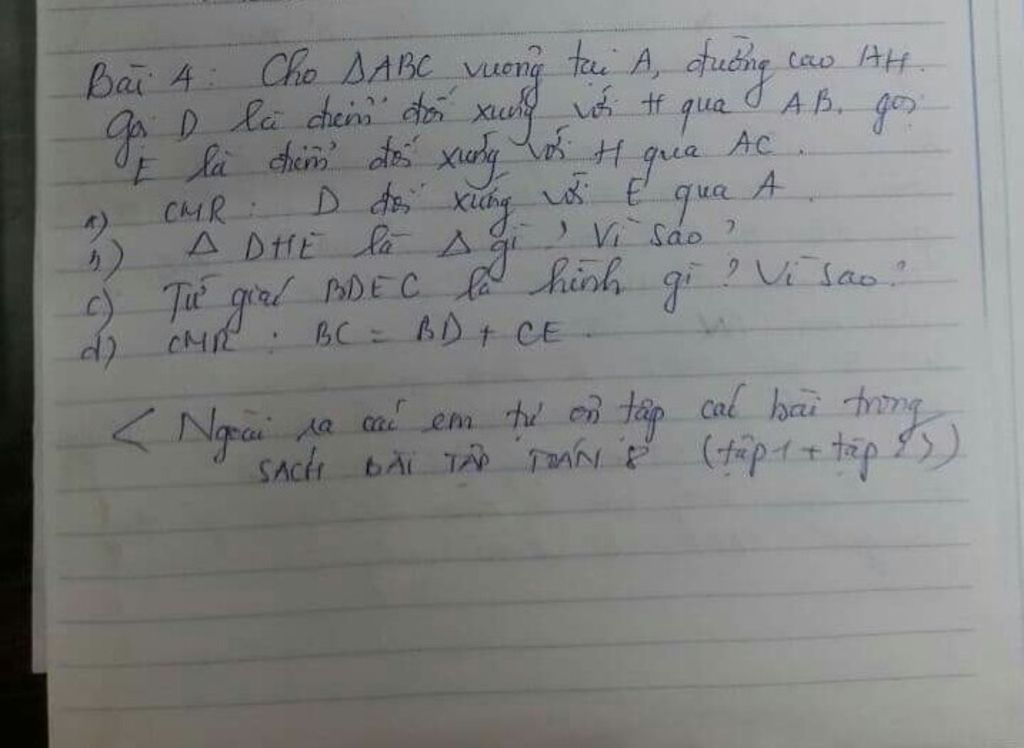 Bài 4: Cho ΔABC vuông tại A, đường cao AH.
Gọi D là điểm đối xứng với H qua AB. gọi
E là điểm đối xứng với H qua AC.
a) CMR: D đối xứng với E qua A.
b) Δ DHE là Δ gì? Vì sao?
c) Tứ giác BDEC là hình gì? Vì sao?
d) CMR: BC = BD + CE.
< Ngoài ra các em tự ôn tập các bài trong
SÁCH BÀI TẬP TOÁN 8 (tập 1 + tập 2 >)